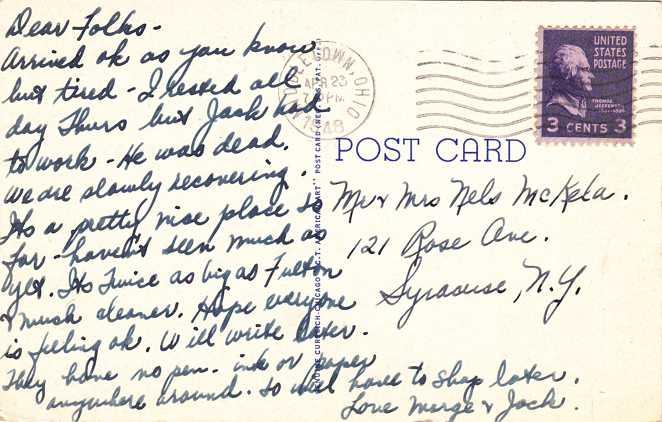 Dear Folks-
Arrived ok as you know
but tired - I rested all
day Thurs but Jack had
to work - He was dead.
We are slowly recovering.
Its a pretty nice place so
far - haven't seen much as
yet. Its twice as big as Fulton
& much cleaner. Hope everyone
is feeling ok. Will write later.
They have no pen - ink or paper
anywhere around. So will have to shop later.
Love Marge & Jack.
OHIO
APR 23
PM
1948
UNITED
STATES
POSTAGE
THOMAS
JEFFERSON
3 CENTS 3
POST CARD
Mr & Mrs Nels McKeta.
121 Rose Ave.
Syracuse, N.Y.
CURTEICH-CHICAGO "C.T. AMERICAN ART" POST CARD (REG. U.S. PAT. OFF.)